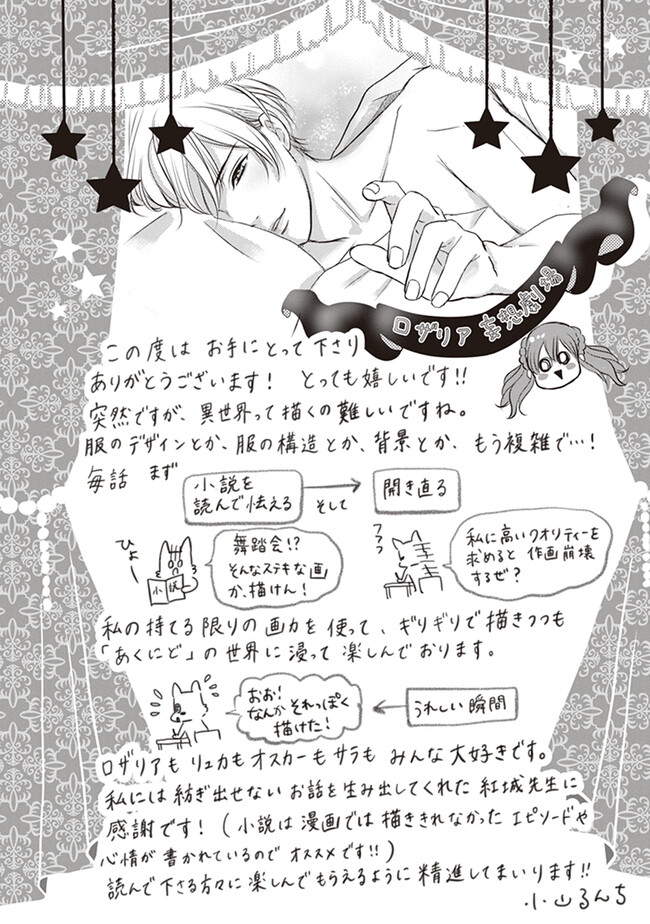 ロザリア妄想劇場
この度は お手にとって下さり
ありがとうございます! とっても嬉しいです!!
突然ですが、異世界って描くの難しいですね。
服のデザインとか、服の構造とか、背景とか、もう複雑で…!
毎話 まず
小説を
読んで怯える
そして
開き直る
ひょー
小説
舞踏会!?
そんなステキな画
か、描けん!
フフフ
私に高いクオリティーを
求めると 作画崩壊
するぜ?
私の持てる限りの画力を使って、ギリギリで描きつつも
「あくにど」の世界に浸って楽しんでおります。
おお!
なんかそれっぽく
描けた!
うれしい瞬間
ロザリアも リュカも オスカーも サラも みんな大好きです。
私には紡ぎ出せないお話を生み出してくれた 紅城先生に
感謝です!(小説は漫画では描ききれなかった エピソードや
心情が書かれているので オススメです!!)
読んで下さる方々に楽しんでもらえるように精進してまいります!!
小山るんち